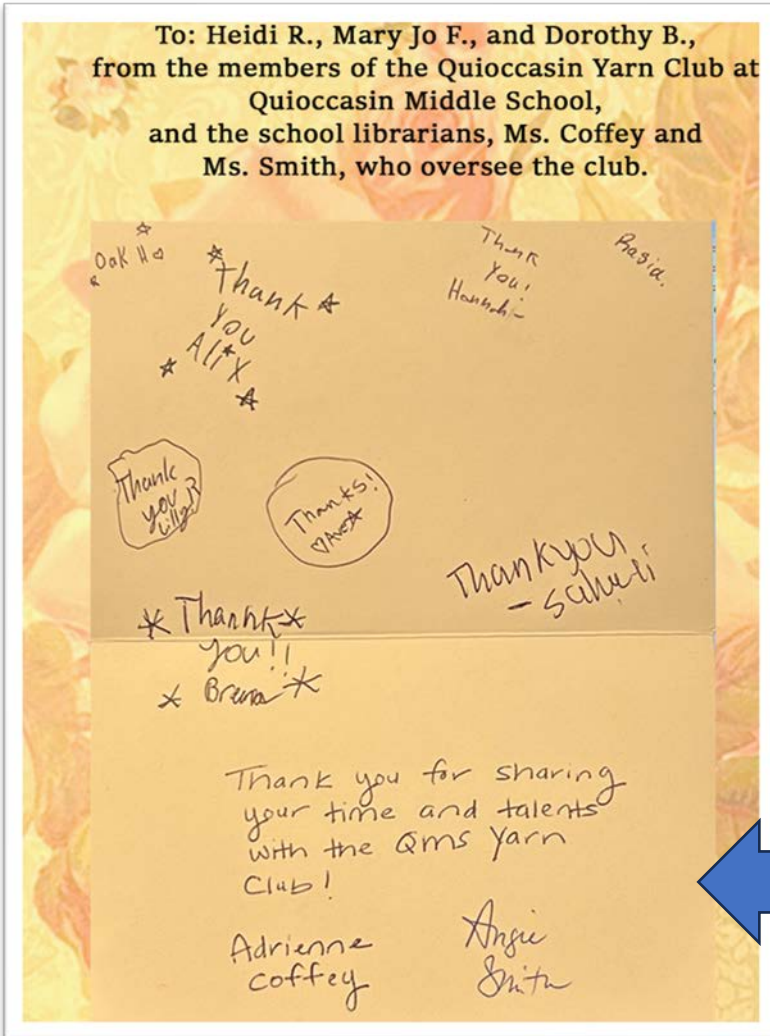 To: Heidi R., Mary Jo F., and Dorothy B.,
from the members of the Quioccasin Yarn Club at
Quioccasin Middle School,
and the school librarians, Ms. Coffey and
Ms. Smith, who oversee the club.
Oak H
Thank
you
Alix
Thank
You!
Hannah
Thank
you
Lilly R
Thanks!
Ava
Thankyou
*Thank*
you!!
Thank you for sharing
your time and talents
with the QMS Yarn
Club!
Adrienne
Coffey
Angie
Smith